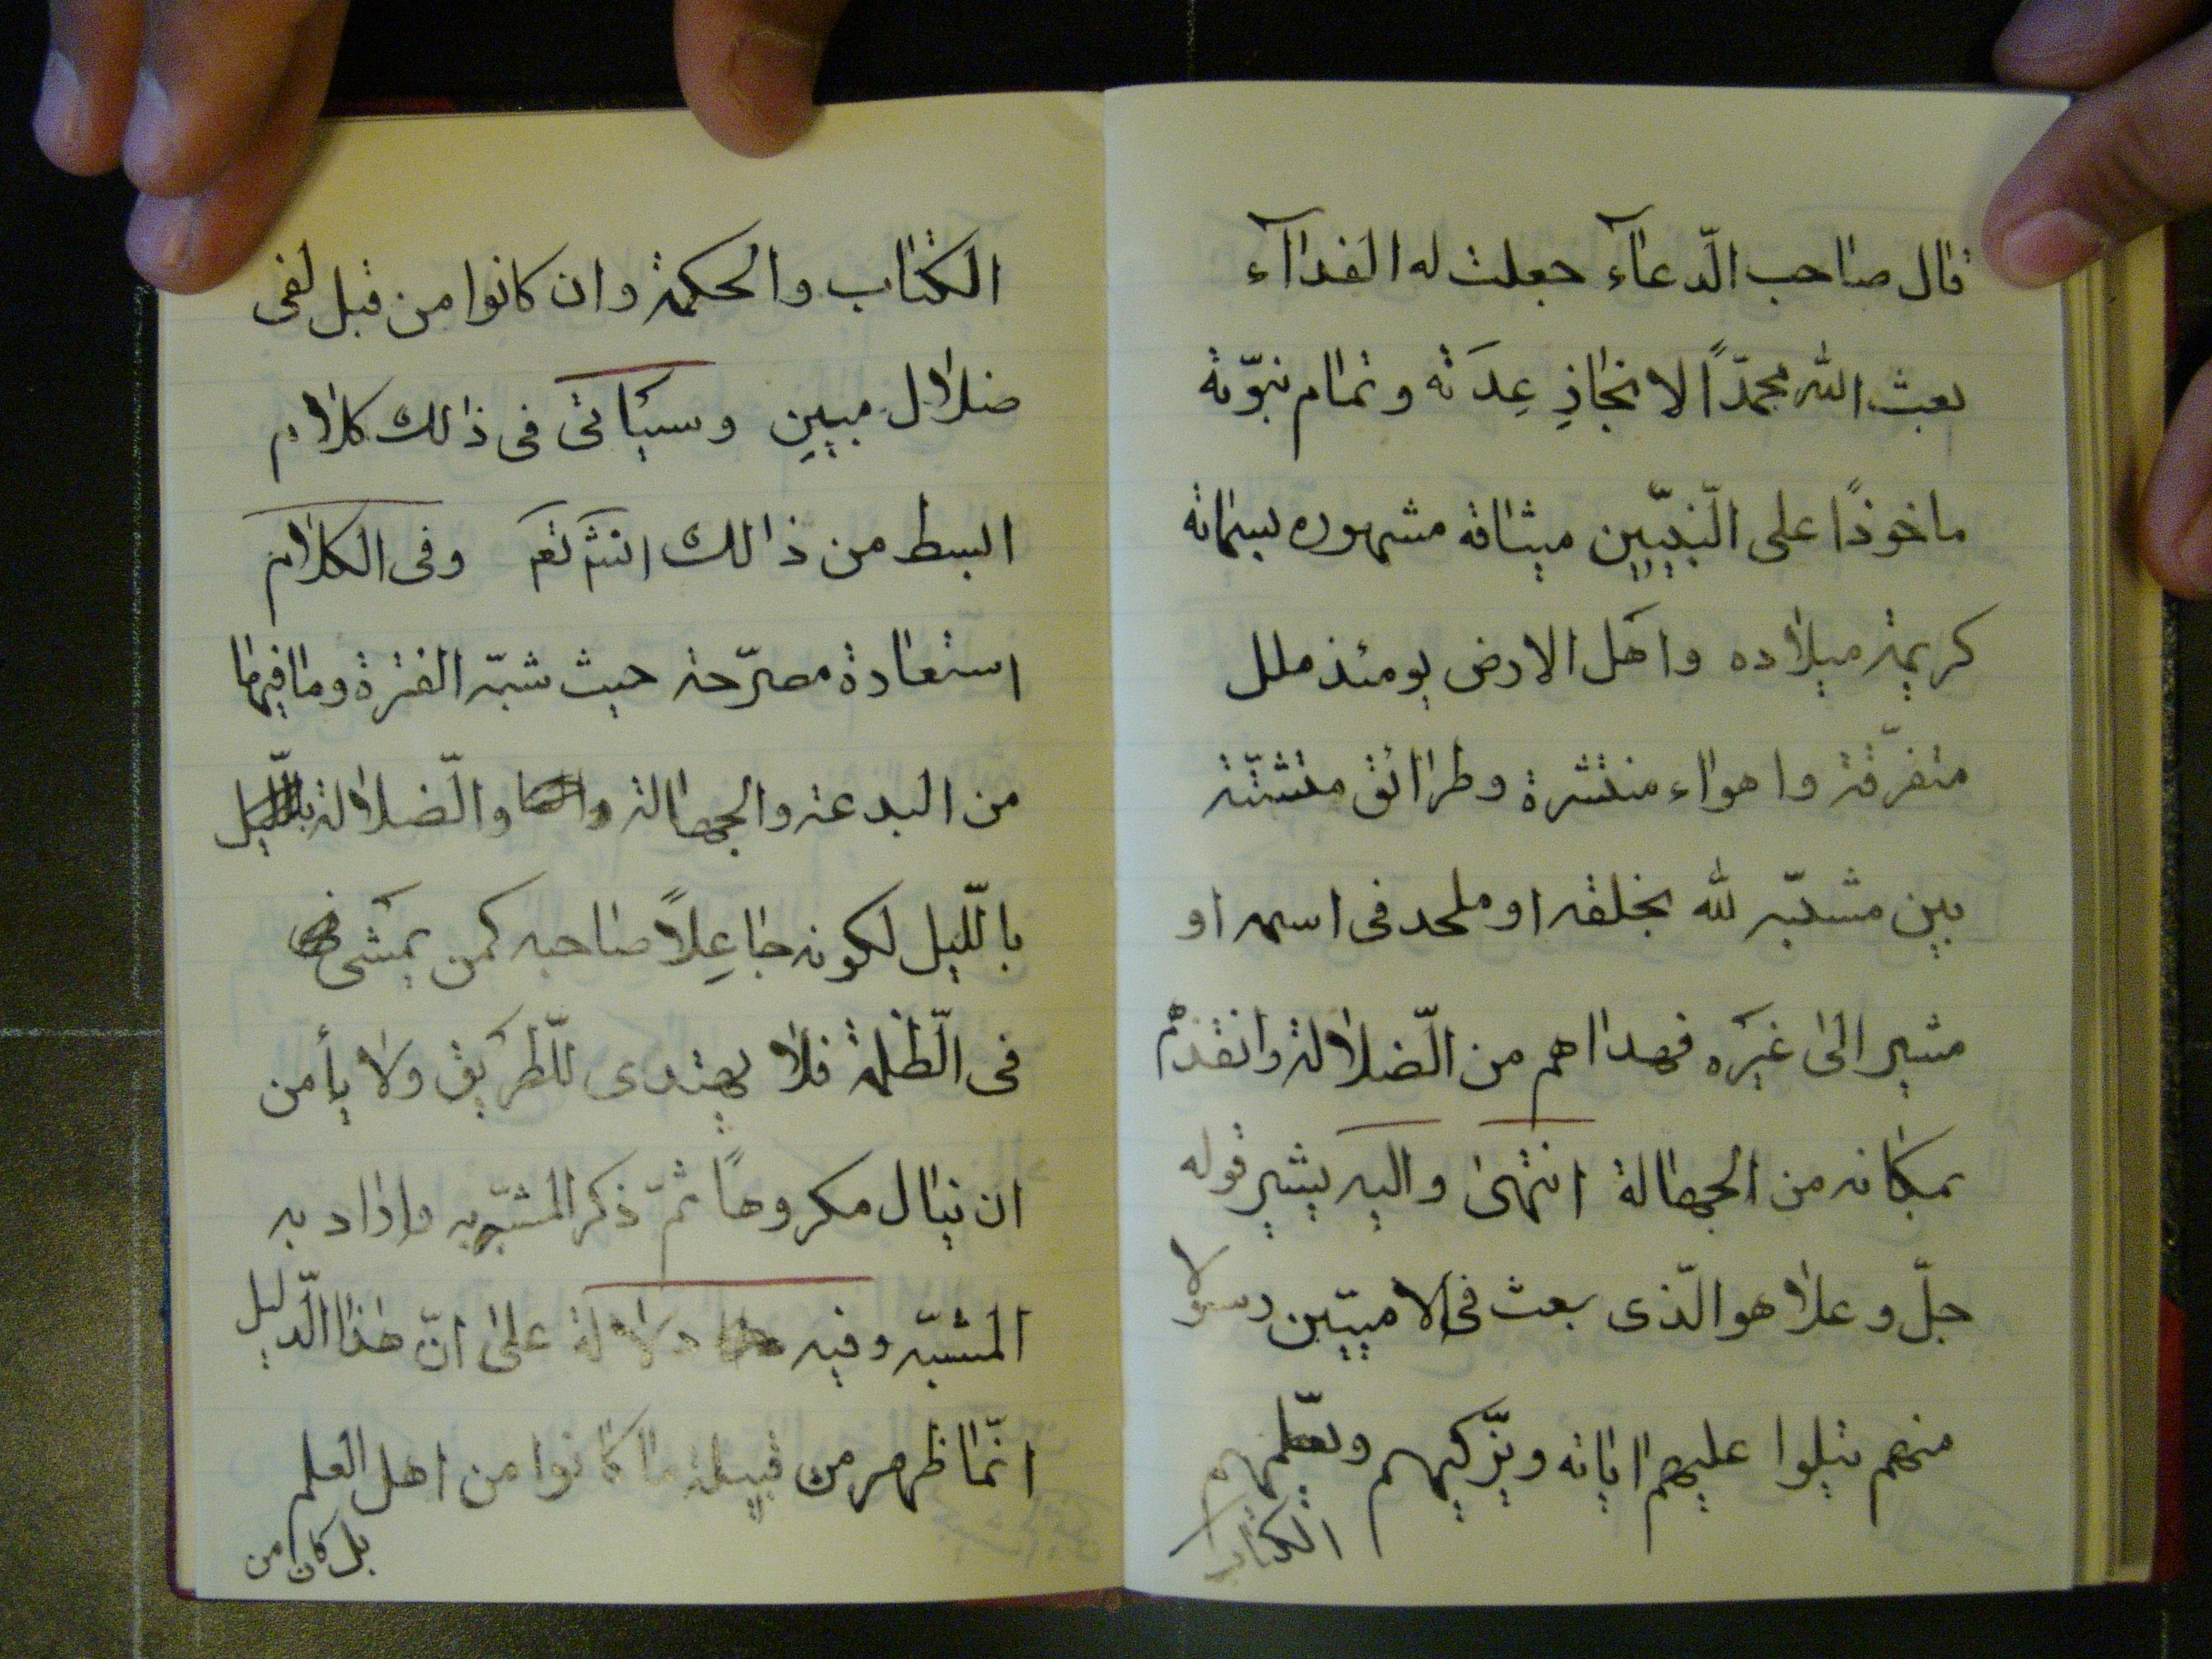 قال صاحب الدّعآء جعلت له الفدآء
بعث الله محمّدًا لانجاذِ عِدَته وتمام نبوّته
ماخوذًا على النّبيّين ميثاقه مشهوره سماته
كريمة ميلاده واهل الارض يومئذ ملل
متفرّقة واهواء منتشرة وطرائق متشتّتة
بين مشبّه لله بخلقه او ملحد فى اسمه او
مشير الى غيره فهداهم من الضّلالة وانقذهم
بمكانه من الجهالة انتهى واليه يشير قوله
جلّ وعلا هو الّذى بعث فى الاميّين رسولا
منهم يتلوا عليهم اياته ويزّكيهم ويعلّمهم
الكتاب
الكتاب والحكمة وان كانوا من قبل لفى
ضلال مبينِ وسيأتى فى ذالك كلام
ابسط من ذالك انتم تعم وفى الكلام
استعارة مصرّحة حيث شبّه الفترة وما فيها
من البدعة والجهالة والضلالة
بالّليل لكونه جاعِلاً صاحبه كمن يمشى
فى الّظلمة فلا يهتدى للّطريق ولا يأمن
ان ينال مكروهًا ثمّ ذكر المشبّه به واراد به
المشبّه وفيه دلالة على انّ هذا الّدليل
انّما ظهر من قبيلة ما كانوا من اهل العلم
بل كان من